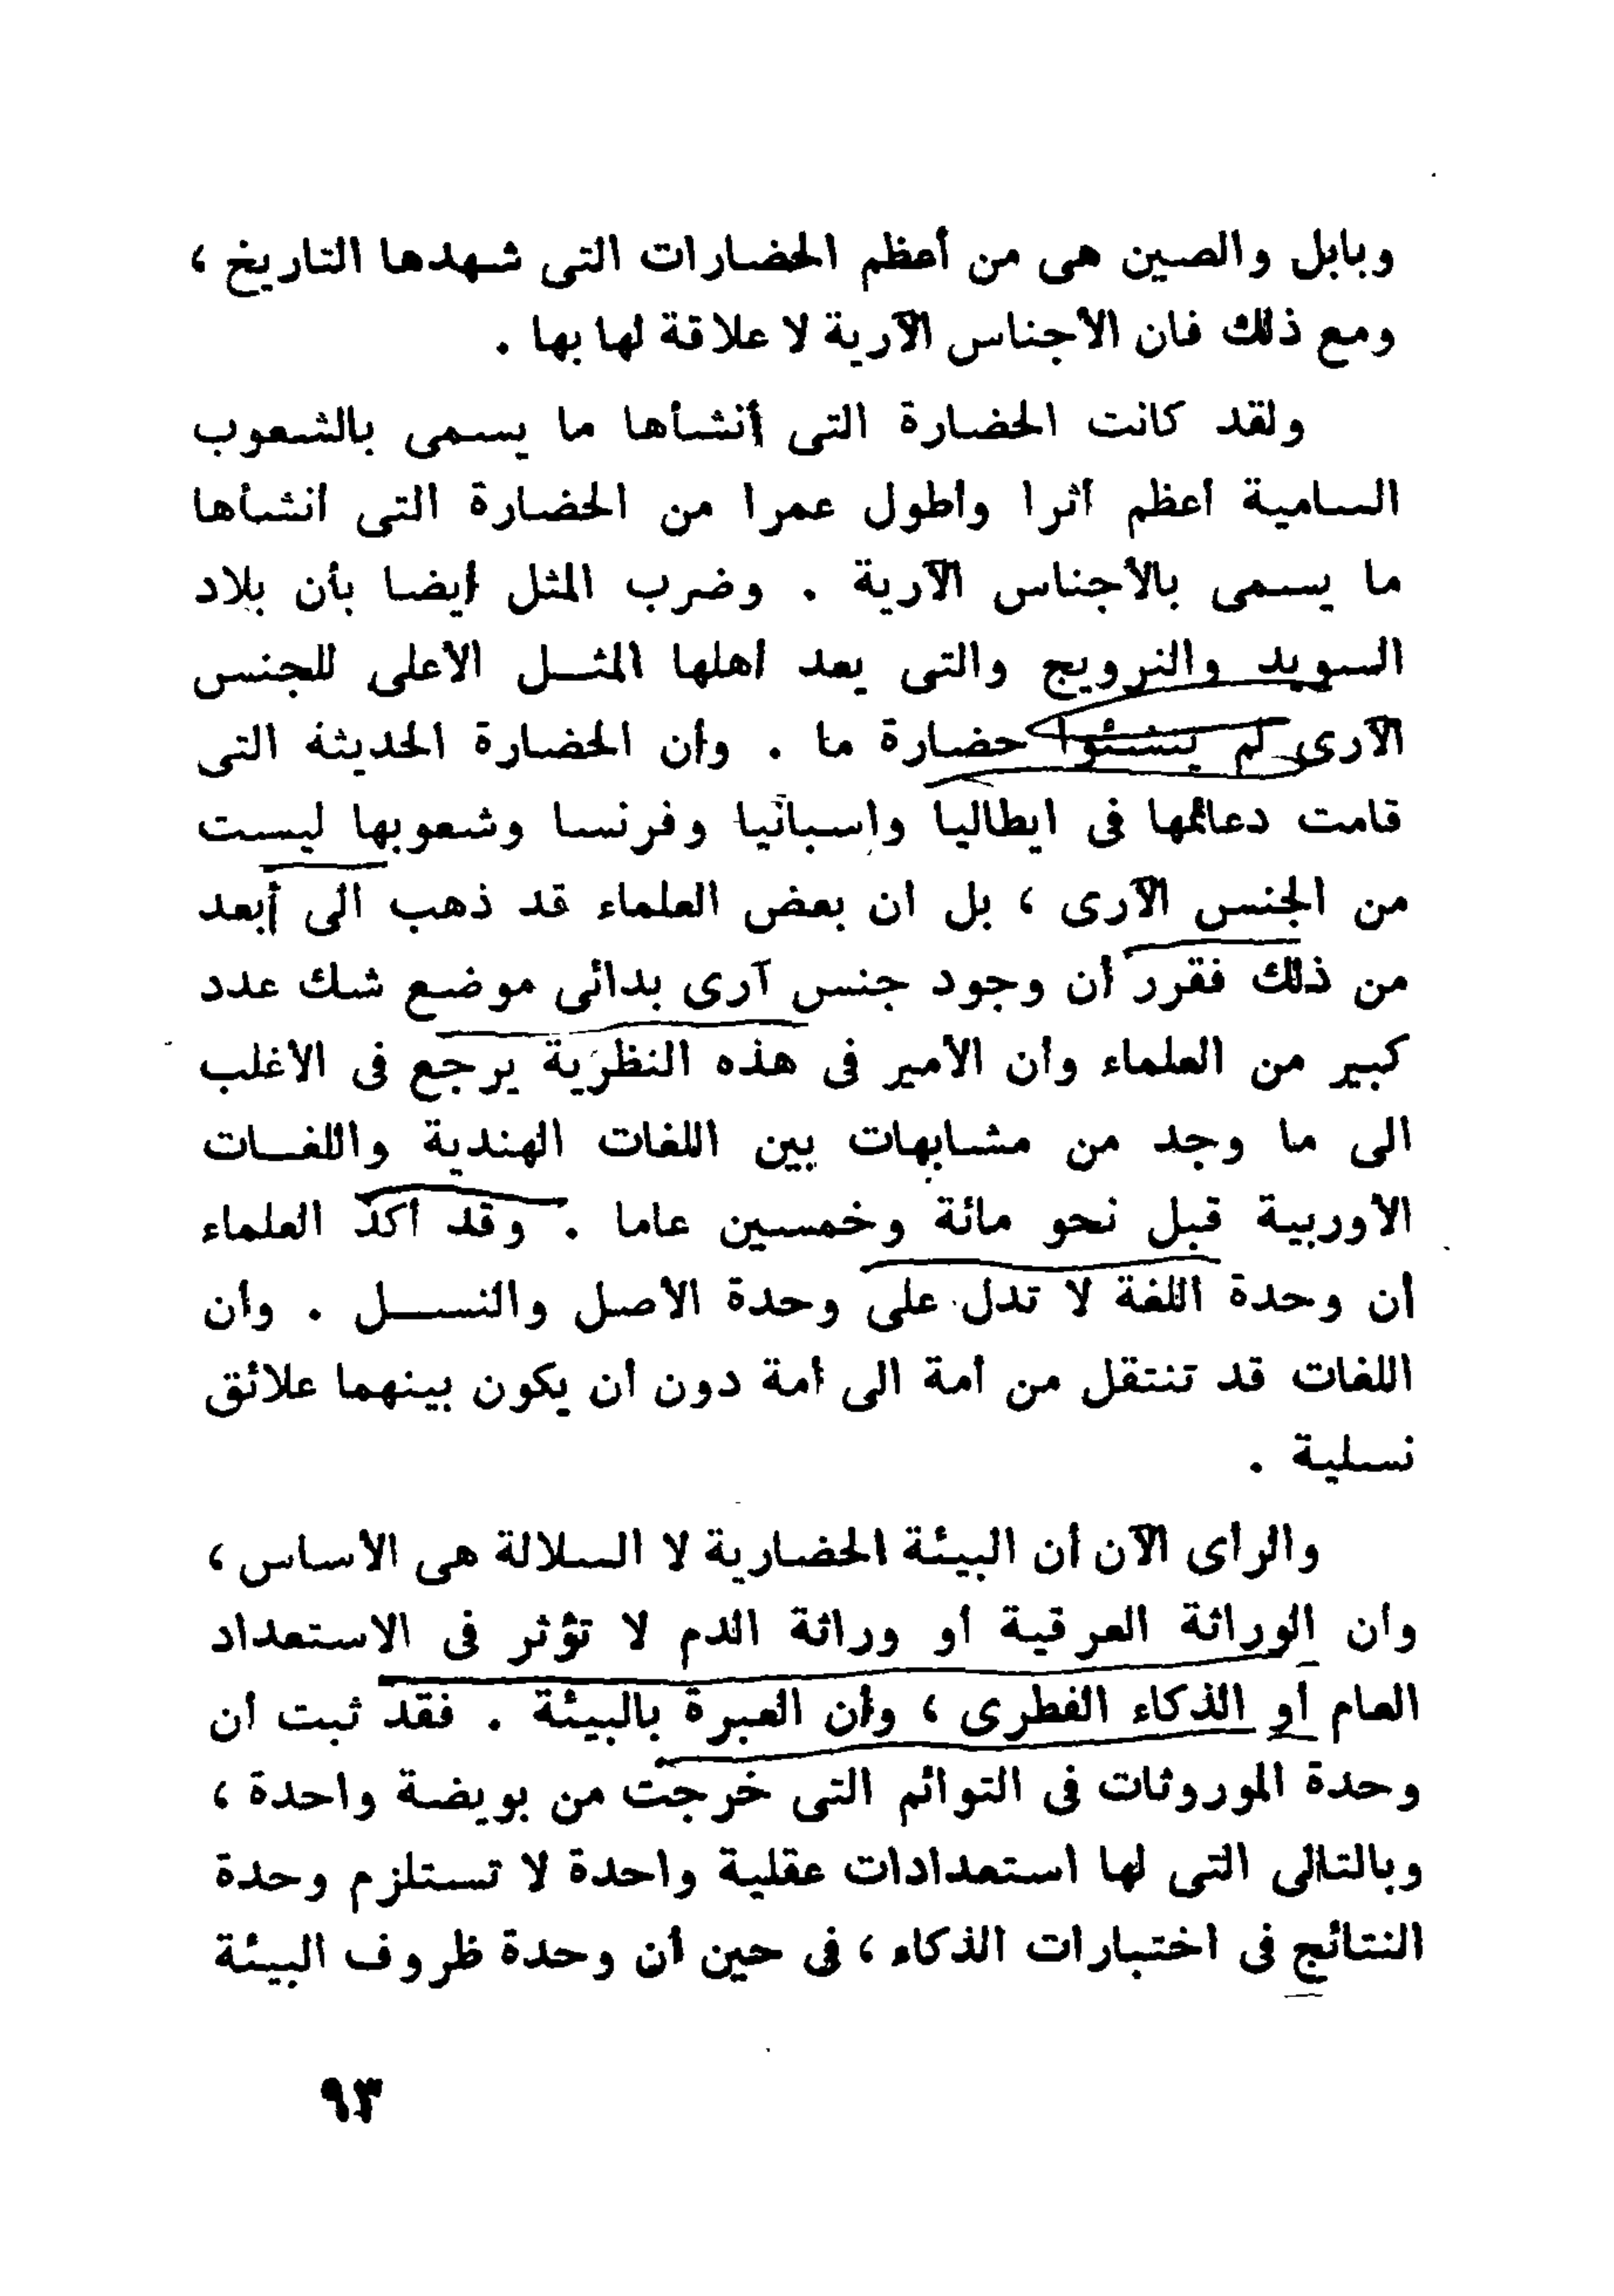 وبابل والصين هى من أعظم الحضارات التى شهدها التاريخ ،
ومع ذلك فان الأجناس الآرية لا علاقة لها بها .
ولقد كانت الحضارة التى أنشأها ما يسمى بالشعوب
السامية أعظم أثرا وأطول عمرا من الحضارة التى أنشأها
ما يسمى بالأجناس الآرية . وضرب المثل أيضا بأن بلاد
السويد والنرويج والتى يعد أهلها المثل الأعلى للجنس
الآرى لم ينشئوا حضارة ما . وأن الحضارة الحديثة التى
قامت دعائمها فى ايطاليا واسبانيا وفرنسا وشعوبها ليست
من الجنس الآرى ، بل ان بعض العلماء قد ذهب الى أبعد
من ذلك فقرر أن وجود جنس آرى بدائى موضع شك عدد
كبير من العلماء وأن الأمير فى هذه النظرية يرجع فى الأغلب
الى ما وجد من مشابهات بين اللغات الهندية واللغات
الأوربية قبل نحو مائة وخمسين عاما . وقد أكد العلماء
أن وحدة اللغة لا تدل على وحدة الأصل والنسل . وأن
اللغات قد تنتقل من أمة الى أمة دون أن يكون بينهما علائق
نسلية .
والرأى الآن أن البيئة الحضارية لا السلالة هى الأساس ،
وأن الوراثة العرقية أو وراثة الدم لا تؤثر فى الاستعداد
العام أو الذكاء الفطرى ، وأن العبرة بالبيئة . فقد ثبت أن
وحدة الموروثات فى التوائم التى خرجت من بويضة واحدة ،
وبالتالى التى لها استعدادات عقلية واحدة لا تستلزم وحدة
النتائج فى اختبارات الذكاء ، فى حين أن وحدة ظروف البيئة
٩٣